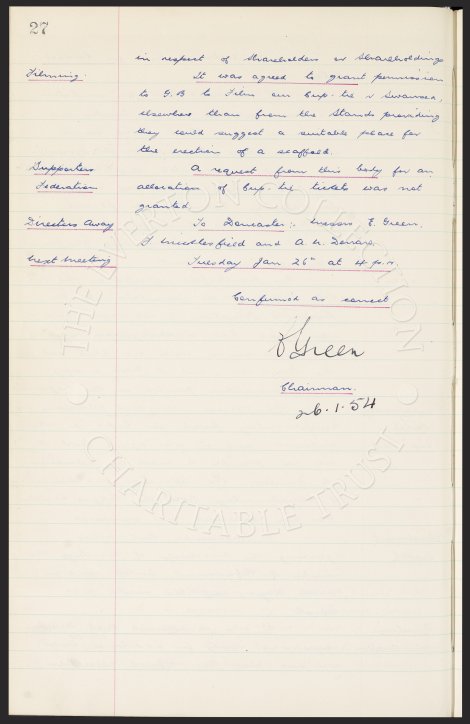 27
in respect of Shareholders or Shareholdings
Filming. It was agreed to grant permission
to G.B to Film our Cup-tie v Swansea,
elsewhere than from the Stands providing
they could suggest a suitable place for
the erection of a scaffold.
Supporters A request from this body for an
Federation allocation of Cup-tie tickets was not
granted
Directors Away To Doncaster:- Messrs E. Green,
and A.
Next Meeting Tuesday Jan 26th at 4 p.m.
Confirmed as correct
E Green
Chairman.
26.1.54
THE EVERTON COLLECTION
CHARITABLE TRUST